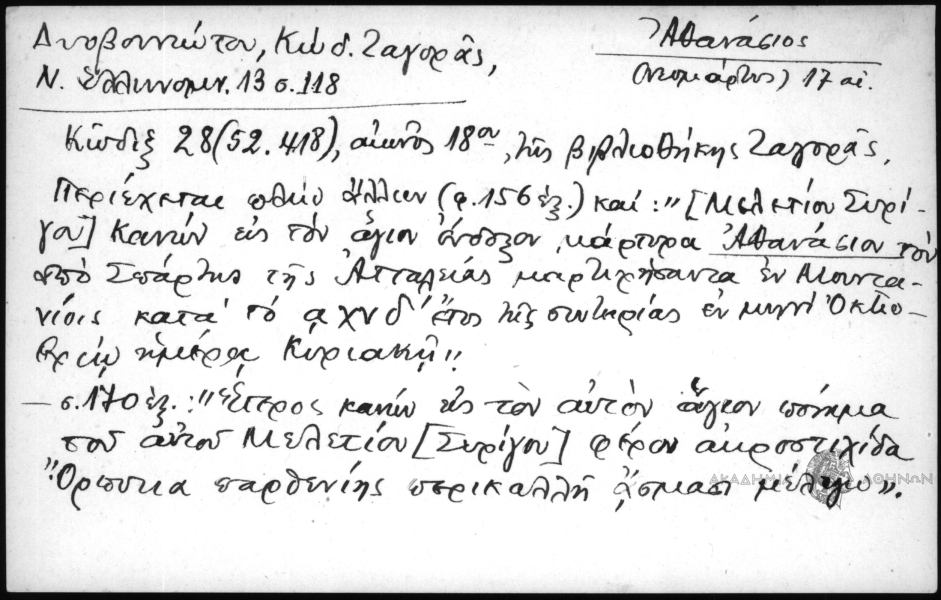 Δυοβουνιώτου, Κώδ. Ζαγορᾶς,
Ν. Ἑλληνομν. 13 σ. 118
Ἀθανάσιος
(Νεομάρτυς) 17 αἰ.
Κῶδιξ 28 (52.418), αἰῶνος 18ου, τῆς βιβλιοθήκης Ζαγορᾶς.
Περιέχεται πλὴν ἄλλων (φ. 156 ἑξ.) καί: "[Μελετίου Συρί-
γου] Κανών εἰς τὸν ἅγιον ἔνδοξον μάρτυρα Ἀθανάσιον τὸν
ἀπὸ Σπάρτης τῆς Ἀτταλείας μαρτυρήσαντα ἐν Μουντα-
νίοις κατά τό αχνδ' ἔτος τῆς σωτηρίας ἐν μηνί Ὀκτω-
βρίῳ ἡμέρᾳ Κυριακῇ"
— σ. 170 ἑξ.: "Ἕτερος κανών εἰς τὸν αὐτὸν ἅγιον ποίημα
τοῦ αὐτοῦ Μελετίου [Συρίγου] φέρον ἀκροστιχίδα
"Ὅρπυκα παρθενίης περικαλλῆ ᾄσμασι μέλπω".
ΑΚΑΔΗΜΙΑ ΑΘΗΝΩΝ